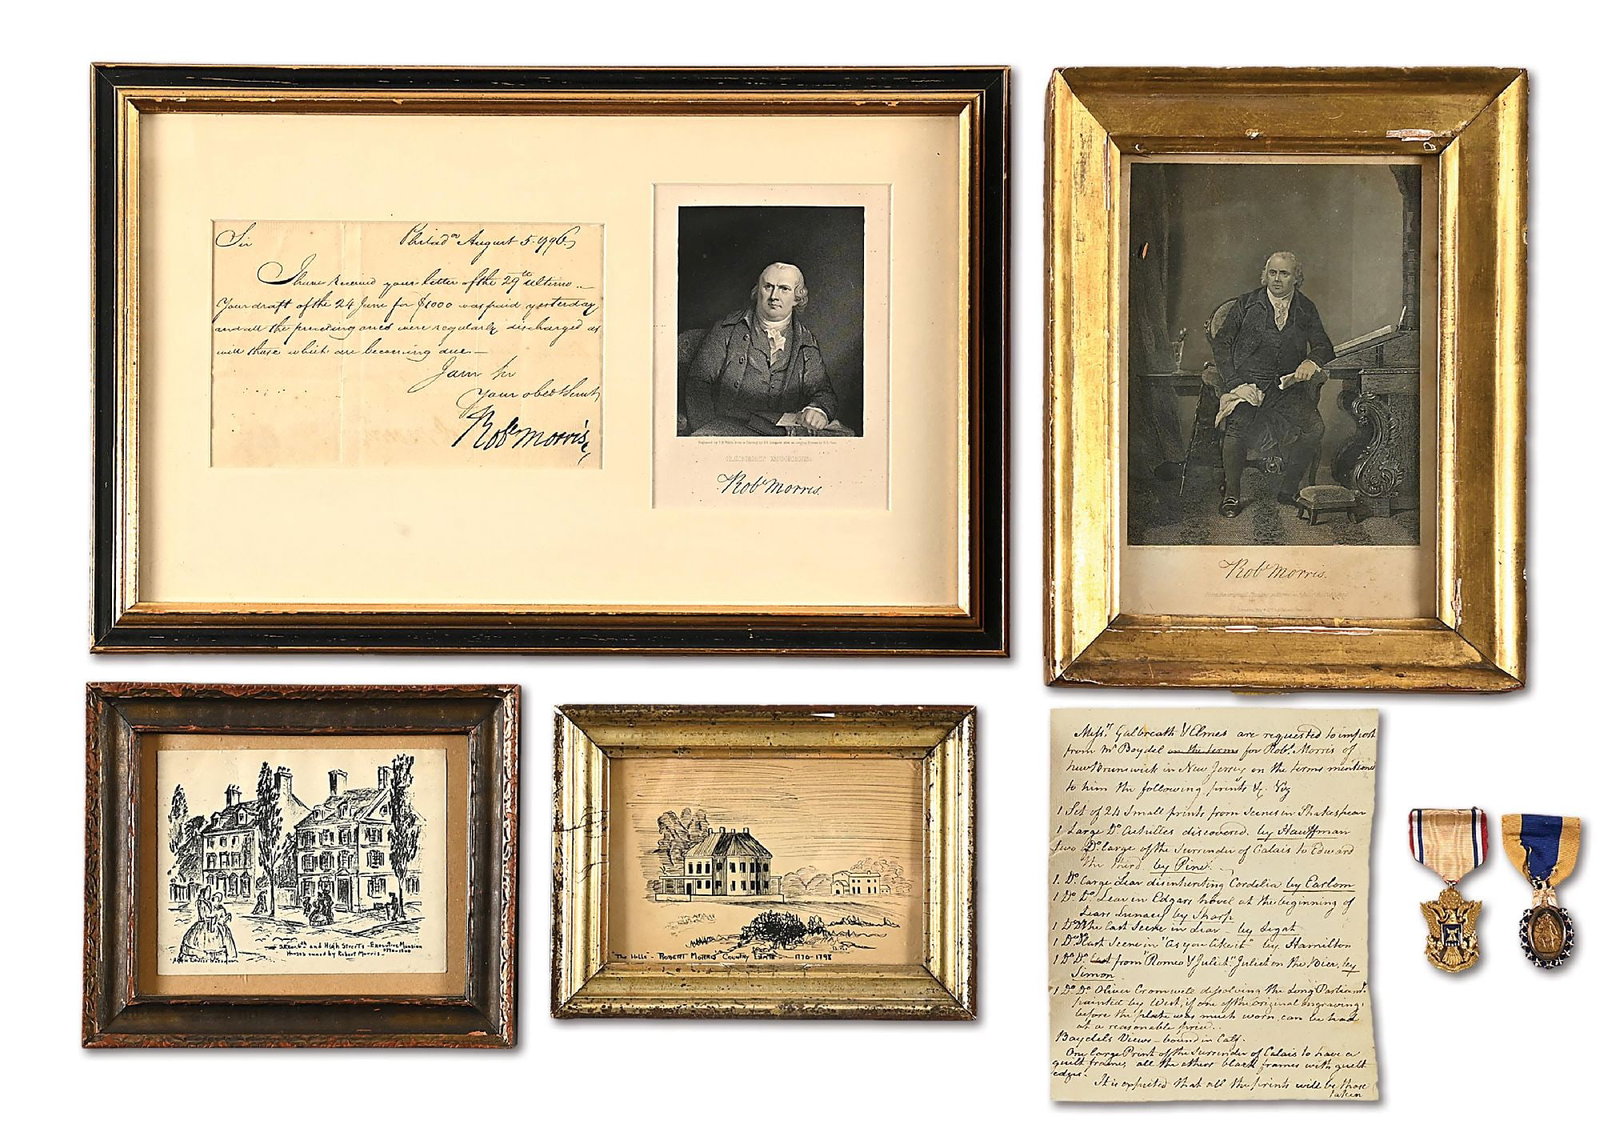 Sir Philad.a August 5. 1796
I have received your letter of the 29th ultimo
Your draft of the 24 June for $1000 was paid yesterday
and all the preceding ones were regularly discharged as
will those which are becoming due
I am Sir
Your obed Servt
Robt Morris
ROBERT MORRIS.
Robt Morris
Robt Morris.
S.E. Cor. 6th and High Streets - Executive Mansion
Houses owned by Robert Morris
"The Hills" - Robert Morris' Country Estate - 1770-1798
Messrs Galbreath & Elmes are requested to import
from Mr Boydel on the terms for Robt Morris of
New Brunswick in New Jersey on the terms mentioned
to him the following prints &c Viz
1 Set of 24 Small prints from Scenes in Shakespear
1 Large Do Achilles discovered by Kauffman
two Do large of the Surrender of Calais to Edward
the third by Pine
1. Do Large Lear disinheriting Cordelia by Earlom
1 Do Do Lear in Edgars hovel at the beginning of
Lears lunacy by Sharp
1 Do Do the last Scene in Lear by Legat
1 Do Do last Scene in "As you like it" by Hamilton
1 Do Do Last from "Romeo & Juliet" Juliet on the Bier, by
Simon
1 Do Do Oliver Cromwell dissolving the Long Parliamt
painted by West, if one of the original Engravings
before the plate was much worn, can be had
at a reasonable price
Boydels Views - bound in Calf.
One large Print of the Surrender of Calais to have a
guilt frame, all the others black frames with guilt
edges.
It is expected that all the prints will be those
taken